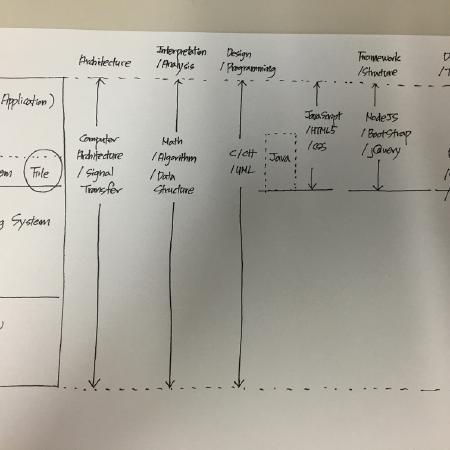 Architecture
Interpretation
/Analysis
Design
/Programming
Framework
/Structure
Application)
Computer
Architecture
/Signal
Transfer
Math
/Algorithm
/Data
Structure
C/C++
/UML
Java
JavaScript
/HTML5
/CSS
NodeJS
/BootStrap
/jQuery
File
System